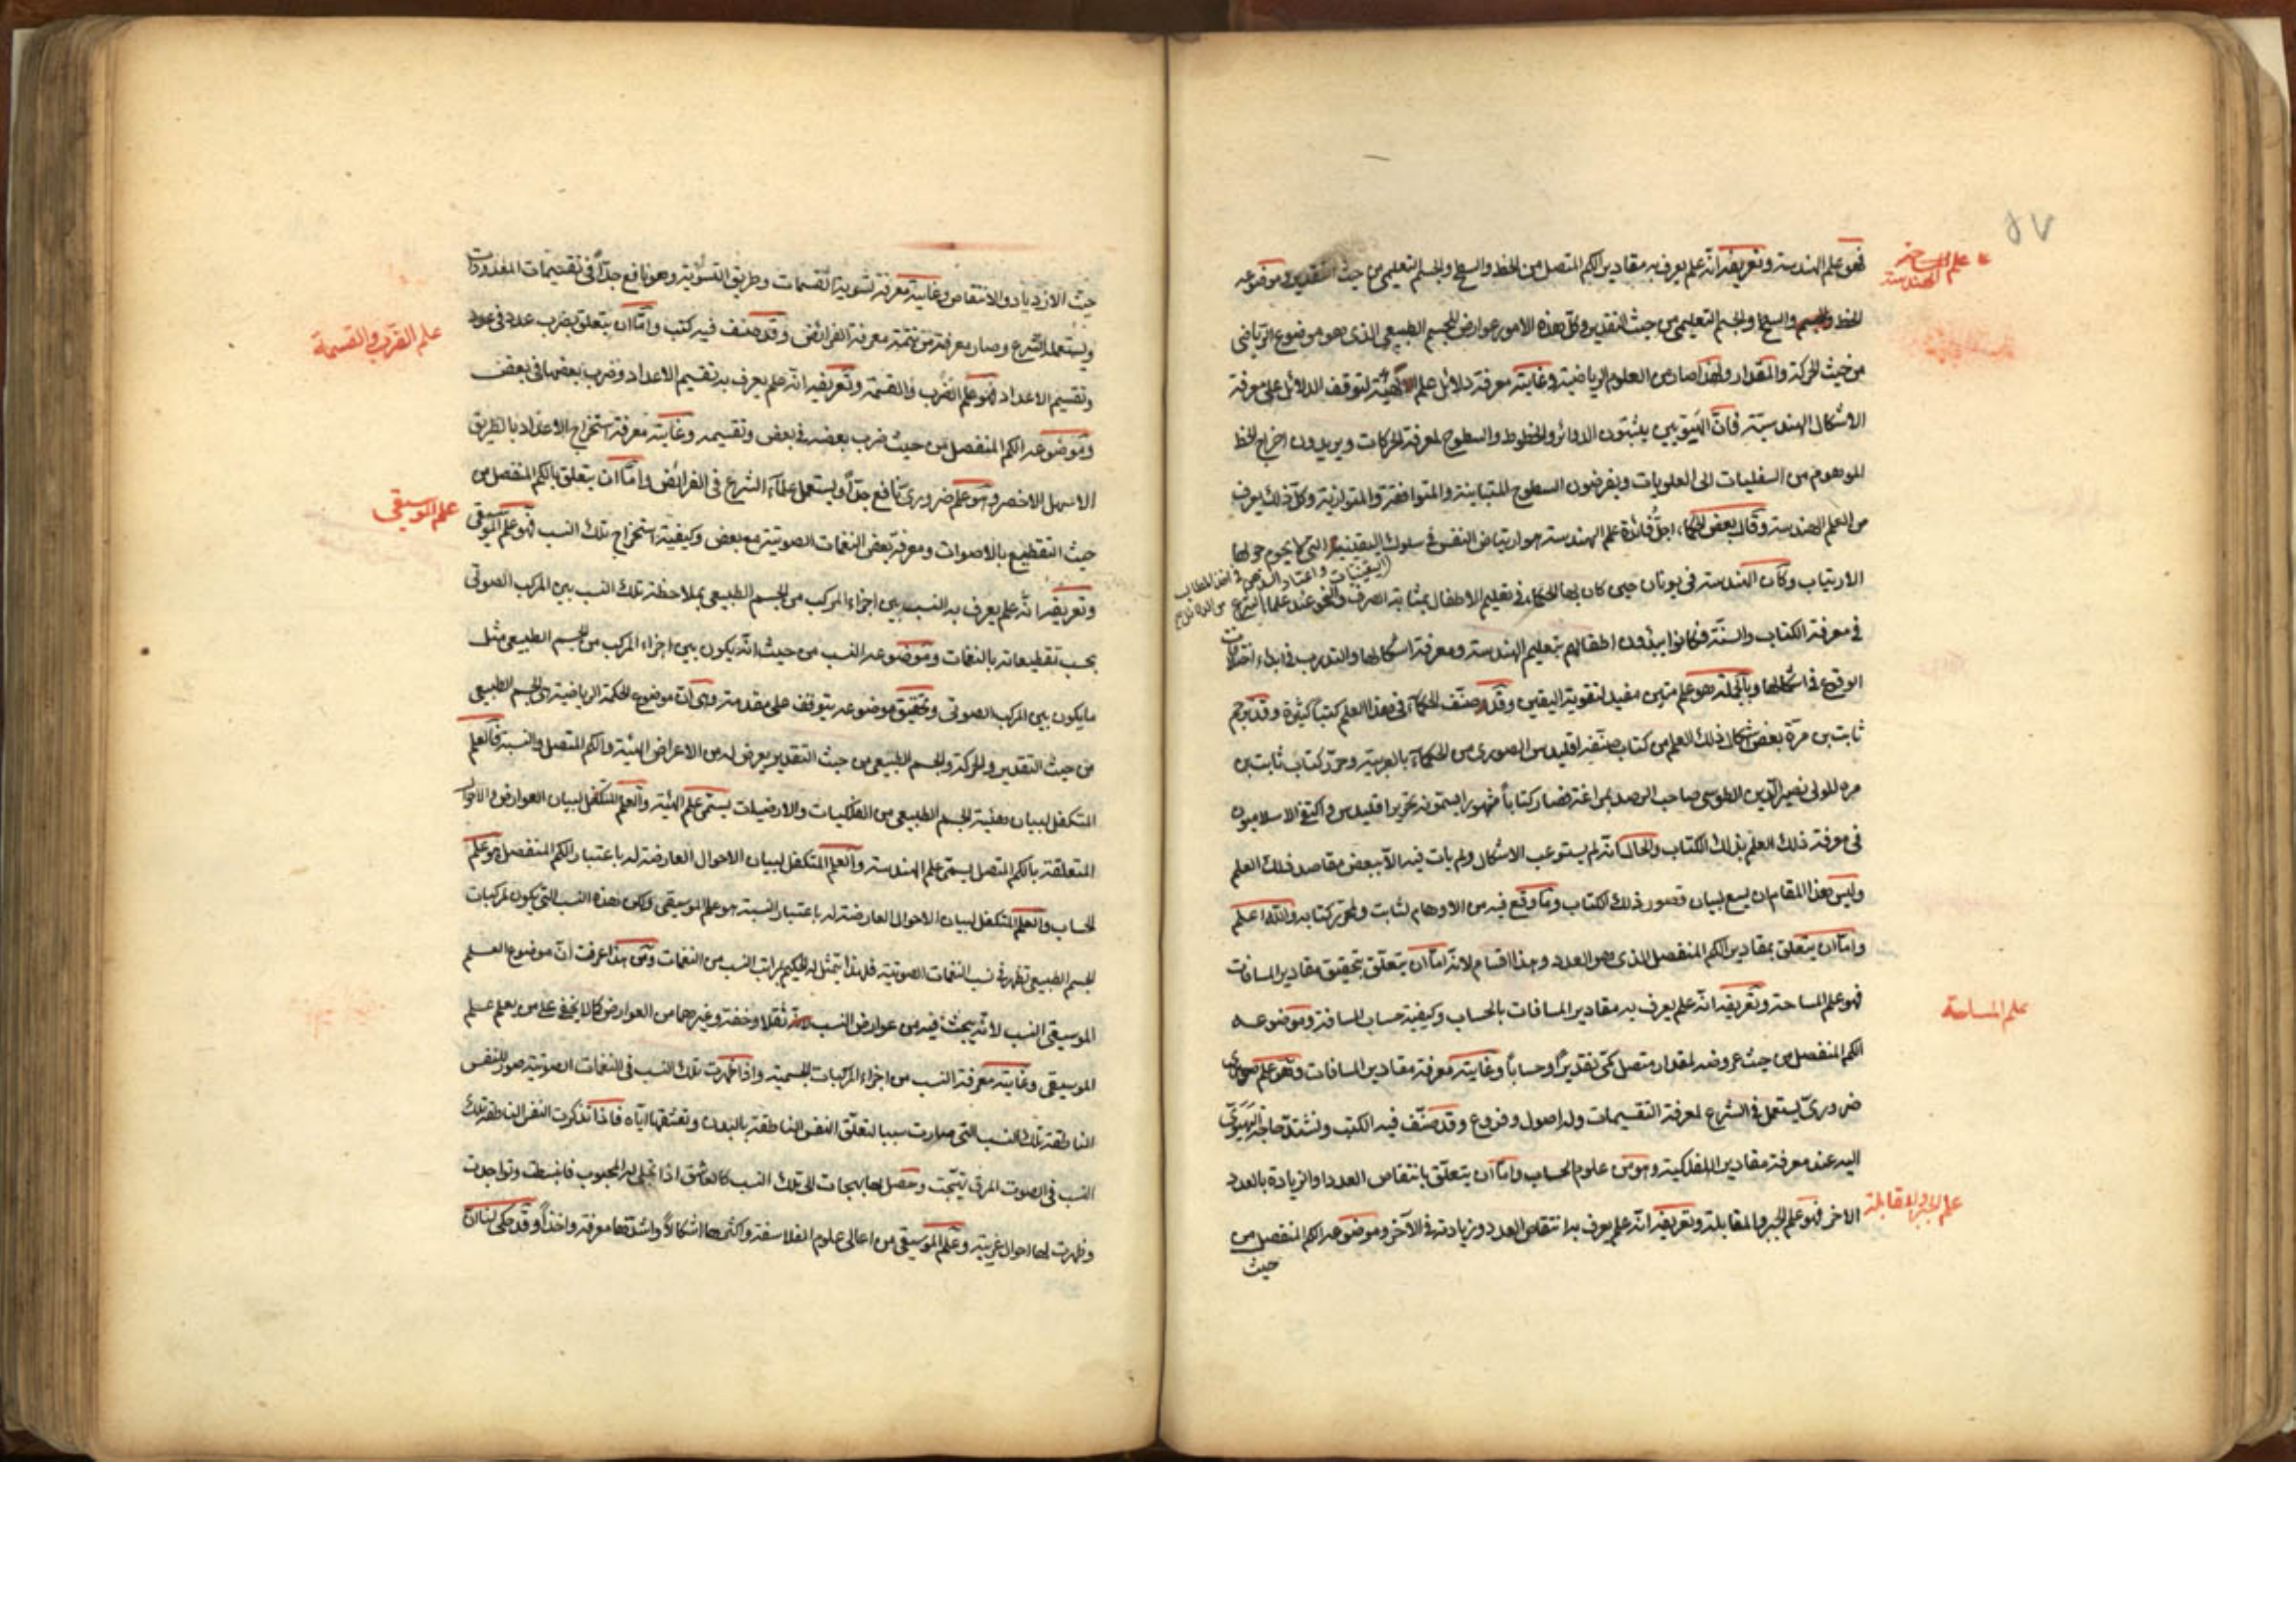 علم المساحة
الهندسة
فهو علم الهندسة وتعريفه انه علم يعرف به مقادير الكم المتصل من الخط والسطح والجسم التعليمى من حيث التقدير وموضوعه
الخط والسطح والجسم التعليمى من حيث التقدير وكل هذه الامور عوارض للجسم الطبيعى الذى هو موضوع الرياضى
من حيث الحركة والمقدار ولهذا صار من العلوم الرياضية وغايته معرفة دلائل علم الهيئة لتوقف الدلائل على معرفة
الاشكال الهندسية فان الهيئويين يثبتون الدوائر والخطوط والسطوح لمعرفة الحركات ويريدون اخراج الخط
الموهوم من السفليات الى العلويات ويفرضون السطوح المتباينة والمتوافقة والمتوازية وكل ذلك يعرف
من العلم الهندسة وقال بعض الحكماء اجل فائدة علم الهندسة هو ارتياض النفس فى سلوك اليقينية التى لا يحوم حولها
الارتياب وكان الهندسة فى يونان حين كان بها الحكماء فى تعليم الاطفال بمثابة الصرف والنحو عند علماء الشرع
فى معرفة الكتاب والسنة فكانوا يبدؤن اطفالهم بتعليم الهندسة ومعرفة اشكالها والتدرب فى ابداء اختلافات
الوقوع فى اشكالها وبالجملة هو علم متين مفيد لتقوية اليقين وقد صنف الحكماء فى هذا العلم كتبا كثيرة وقد ترجم
ثابت بن مرة بعض اشكال ذلك العلم من كتاب صنفه اقليدس الصورى من الحكماء بالعربية وحرر كتاب ثابت بن
مرة المولى نصير الدين الطوسى صاحب الرصد بمراغة فصار كتابا مشهورا يسمونه تحرير اقليدس واكتفى الاسلاميون
فى معرفة ذلك العلم بذلك الكتاب والحال انه لم يستوعب الاشكال ولم يات فيه الا ببعض مقاصد ذلك العلم
وليس هذا المقام ان يسع لبيان قصور ذلك الكتاب وما وقع فيه من الاوهام لثابت ولمحرر كتابه والله اعلم
واما ان يتعلق بمقادير الكم المنفصل الذى هو العدد وهذا اقسام لانه اما ان يتعلق بتحقيق مقادير المسافات
علم المساحة
فهو علم المساحة وتعريفه انه علم يعرف به مقادير المسافات بالحساب وكيفية حساب المسافة وموضوعه
الكم المنفصل من حيث عروضه لمقدار متصل كمى تقديرا وحسابا وغايته معرفة مقادير المسافات وهو علم
ضرورى يستعمل فى الشرع لمعرفة التقسيمات وله اصول وفروع وقد صنف فيه الكتب وتشتد حاجة الهيوى
اليه عند معرفة مقادير الفلكية وهو من علوم الحساب واما ان يتعلق بانتقاص العدد او الزيادة بالعدد
علم الجبر والمقابلة
الاخر فهو علم الجبر والمقابلة وتعريفه انه علم يعرف به انتقاص العدد وزيادته فى الآخر وموضوعه الكم المنفصل من
حيث
حيث الازدياد والانتقاص وغايته معرفة تسوية القسمات وطريق التسوية وهو نافع جدا فى تقسيمات المقدورات
ويستعمله الشرع وصار معرفته من تتمة معرفة الفرائض وقد صنف فيه كتب واما ان يتعلق بضرب عدد فى عدد
علم الضرب والقسمة
وتقسيم الاعداد فهو علم الضرب والقسمة وتعريفه انه علم يعرف به تقسيم الاعداد وضرب بعضها فى بعض
وموضوعه الكم المنفصل من حيث ضرب بعضه فى بعض وتقسيمه وغايته معرفة استخراج الاعداد بالطريق
الاسهل الاخصر وهو علم ضرورى نافع جدا ويستعمل علماء الشرع فى الفرائض واما ان يتعلق بالكم المنفصل من
علم الموسيقى
حيث التقطيع بالاصوات ومعرفة بعض النغمات الصوتية مع بعض وكيفية استخراج تلك النسب فهو علم الموسيقى
وتعريفه انه علم يعرف به النسب بين اجزاء المركب من الجسم الطبيعى بملاحظة تلك النسب بين المركب الصوتى
بحسب تقطيعاته بالنغمات وموضوعه النسب من حيث انه يكون بين اجزاء المركب من الجسم الطبيعى مثل
ما يكون بين المركب الصوتى وتحقيق موضوعه يتوقف على مقدمة وهى ان موضوع الحكمة الرياضية هى الجسم الطبيعى
من حيث التقدير والحركة والجسم الطبيعى من حيث التقدير يعرض له من الاعراض الهيئة والكم المتصل والنسبة فالعلم
المتكفل لبيان هيئة الجسم الطبيعى من الفلكيات والارضيات يسمى علم الهيئة والعلم المتكفل لبيان العوارض والاحوال
المتعلقة بالكم المتصل يسمى علم الهندسة والعلم المتكفل لبيان الاحوال العارضة له باعتبار الكم المنفصل هو علم
الحساب والعلم المتكفل لبيان الاحوال العارضة له باعتبار النسبة هو علم الموسيقى ولكن هذه النسب التى يكون لمركبات
الجسم الطبيعى تظهر فى نسب النغمات الصوتية فلهذا يتمثل له الحكيم بمراتب النسب من النغمات ومن هذا عرفت ان موضوع العلم
الموسيقى النسب لانه يبحث فيه من عوارض النسب ثقلا وخفة وغيرهما من العوارض كما لا يخفى على من يعلم علم
الموسيقى وغايته معرفة النسب من اجزاء المركبات الجسمية واذا ظهرت تلك النسب فى النغمات الصوتية صور للنفس
الناطقة تلك النسب التى صارت سببا لتعلق النفس الناطقة بالبدن وتعشقها اياه فاذا تذكرت النفس الناطقة تلك
النسب فى الصوت المرقى تهيجت وحصل لها بهجات الى تلك النسب كالعاشق اذا تجلى له المحبوب فانبسطت وتواجدت
وظهرت لها احوال غريبة وعلم الموسيقى من اعالى علوم الفلاسفة واكثرها اشكالا واشدها معرفة واخذا وقد حكى لنا ان